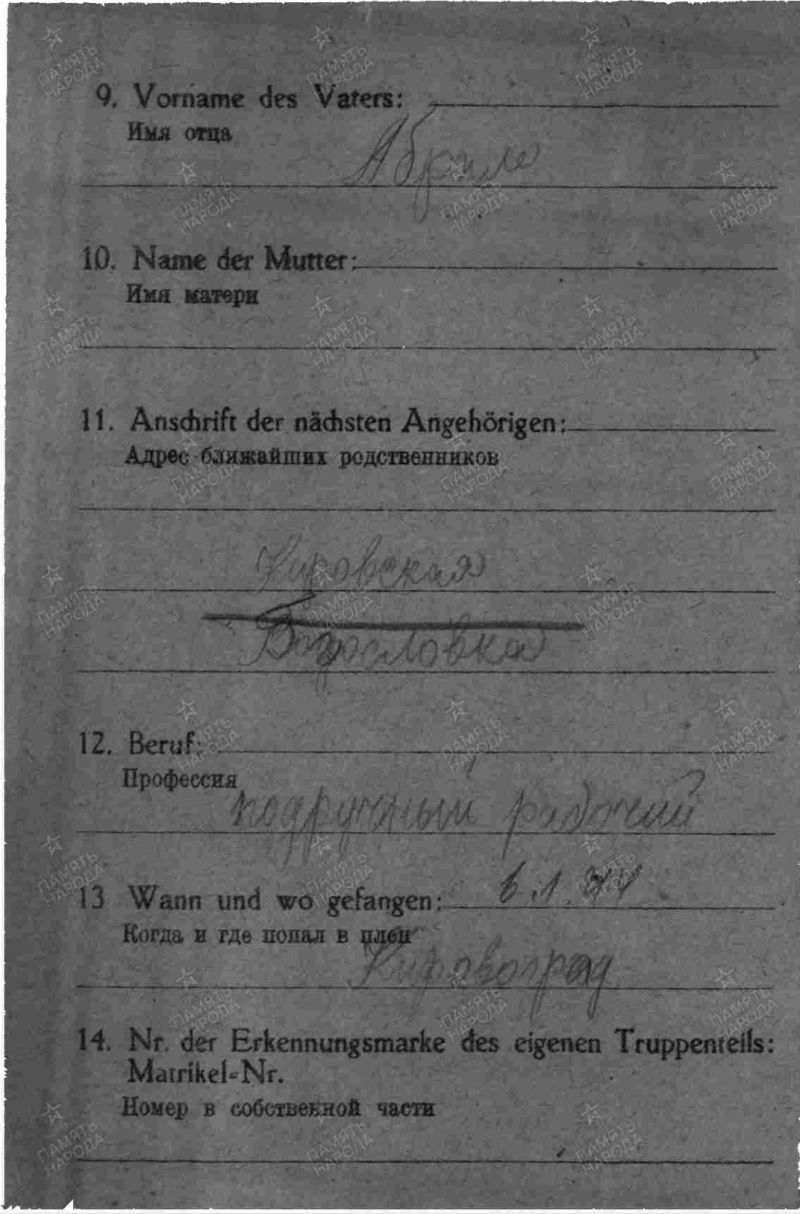 9. Vorname des Vaters:
Имя отца
10. Name der Mutter:
Имя матери
11. Anschrift der nächsten Angehörigen:
Адрес ближайших родственников
Кировская
12. Beruf:
Профессия
подручный рабочий
13 Wann und wo gefangen: 6.1.44
Когда и где попал в плен
Кировоград
14. Nr. der Erkennungsmarke des eigenen Truppenteils:
Matrikel-Nr.
Номер в собственной части
ПАМЯТЬ НАРОДА